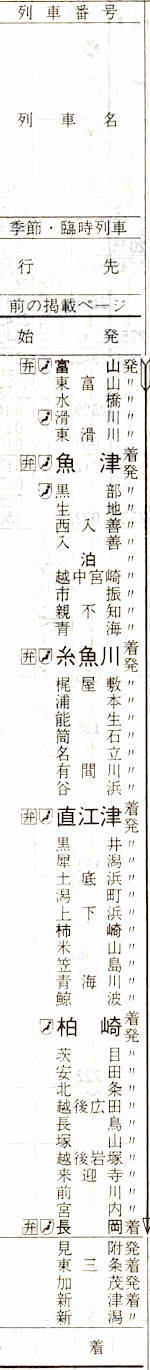 列車番号
列車名
季節・臨時列車
行先
前の掲載ページ
始発
弁 富山発
東富山〃
水橋〃
滑川〃
東滑川〃
弁 魚津着発
黒部〃
生地〃
西入善〃
入善〃
泊〃
越中宮崎〃
市振〃
親不知〃
青海〃
弁 糸魚川着発
梶屋敷〃
浦本〃
能生〃
筒石〃
名立〃
有間川〃
谷浜〃
弁 直江津着発
黒井〃
犀潟〃
土底浜〃
潟町〃
上下浜〃
柿崎〃
米山〃
笠島〃
青海川〃
鯨波〃
柏崎着発
茨目〃
安田〃
北条〃
越後広田〃
長鳥〃
塚山〃
越後岩塚〃
来迎寺〃
前川〃
宮内〃
弁 長岡着
見附発
東三条着
加茂発
新津着
新潟〃
着